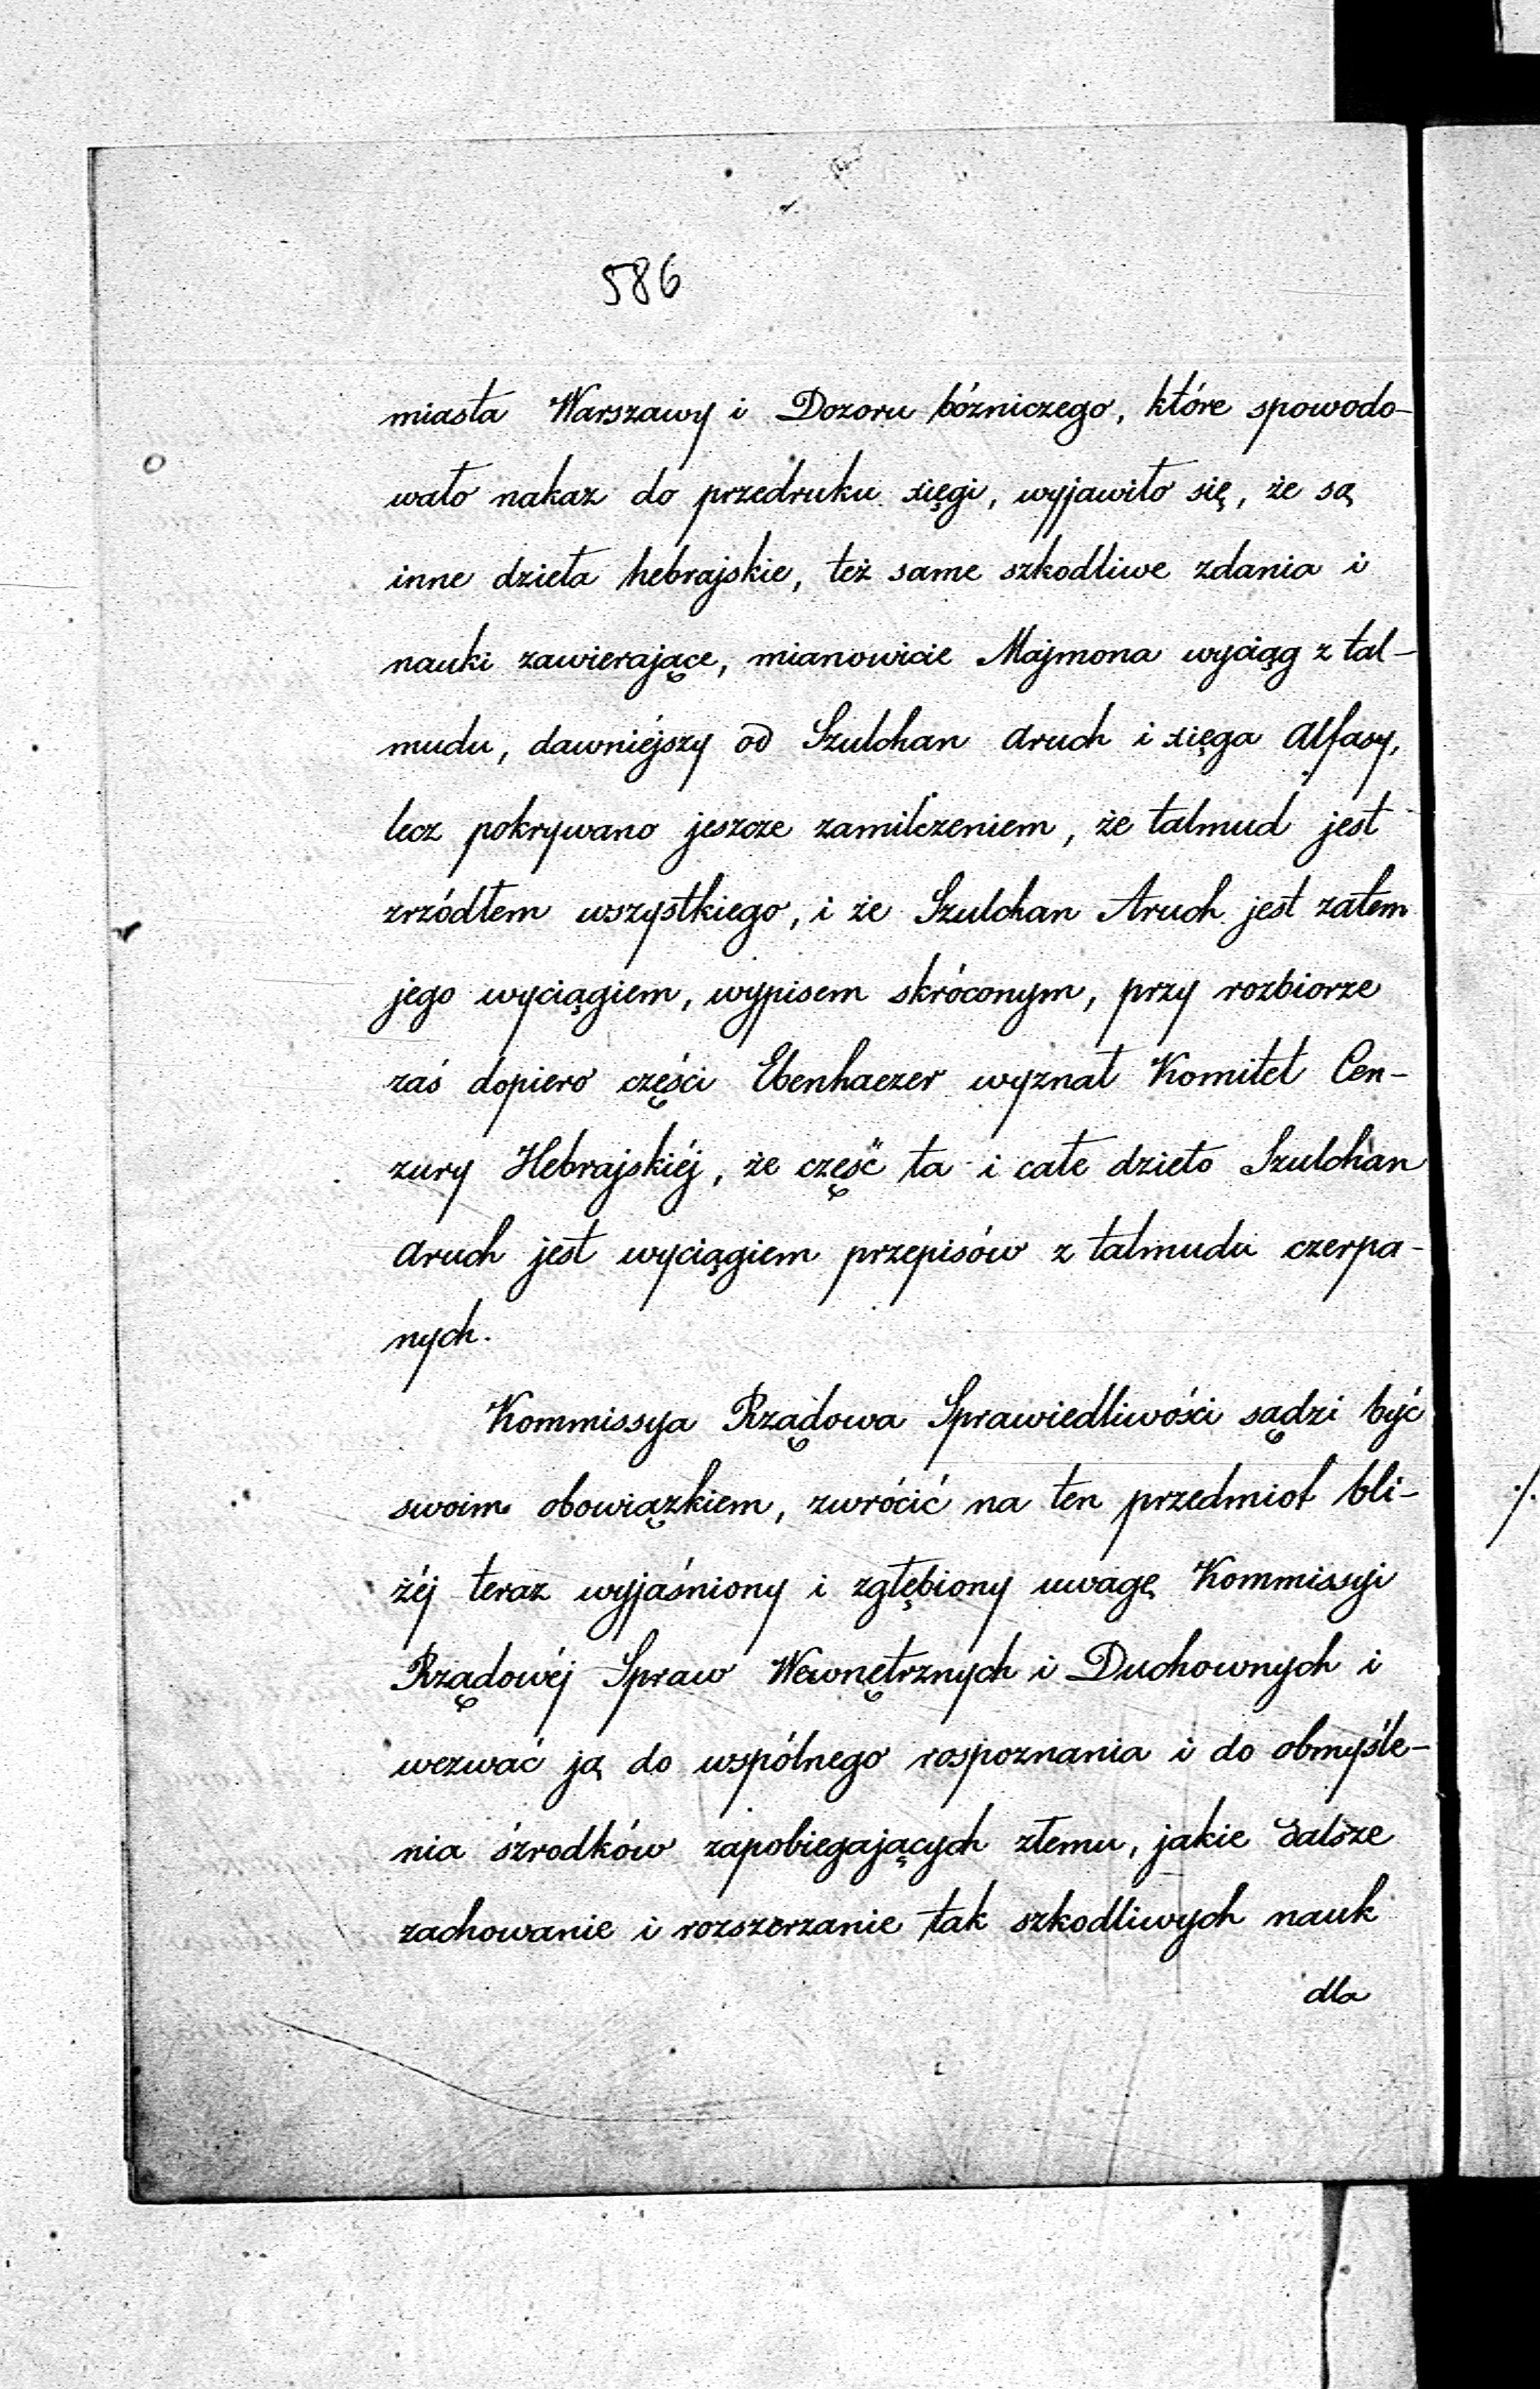 586
miasta Warszawy i Dozoru bózniczego, które spowodo-
wało nakaz do przedruku xięgi, wyjawiło się, że są
inne dzieła hebrajskie, też same szkodliwe zdania i
nauki zawierające, mianowicie Majmona wyciąg z tal-
mudu, dawniéjszy od Szulchan aruch i xięga Alfasy,
lecz pokrywano jeszcze zamilczeniem, że talmud jest
zrzódłem wszystkiego, i że Szulchan Aruch jest zatem
jego wyciągiem, wypisem skróconym, przy rozbiorze
zaś dopiero części Ebenhaezer wyznał Komitet Cen-
zury Hebrajskiéj, że część ta i całe dzieło Szulchan
aruch jest wyciągiem przepisów z talmudu czerpa-
nych.
Kommissya Rządowa Sprawiedliwości sądzi być
swoim obowiązkiem, zwrócić na ten przedmiot bli-
żéj teraz wyjaśniony i zgłębiony uwagę Kommissyi
Rządowéj Spraw Wewnętrznych i Duchownych i
wezwać ją do wspólnego rospoznania i do obmyśle-
nia śzrodków zapobiegających złemu, jakie dalsze
zachowanie i rozszerzanie tak szkodliwych nauk
dla